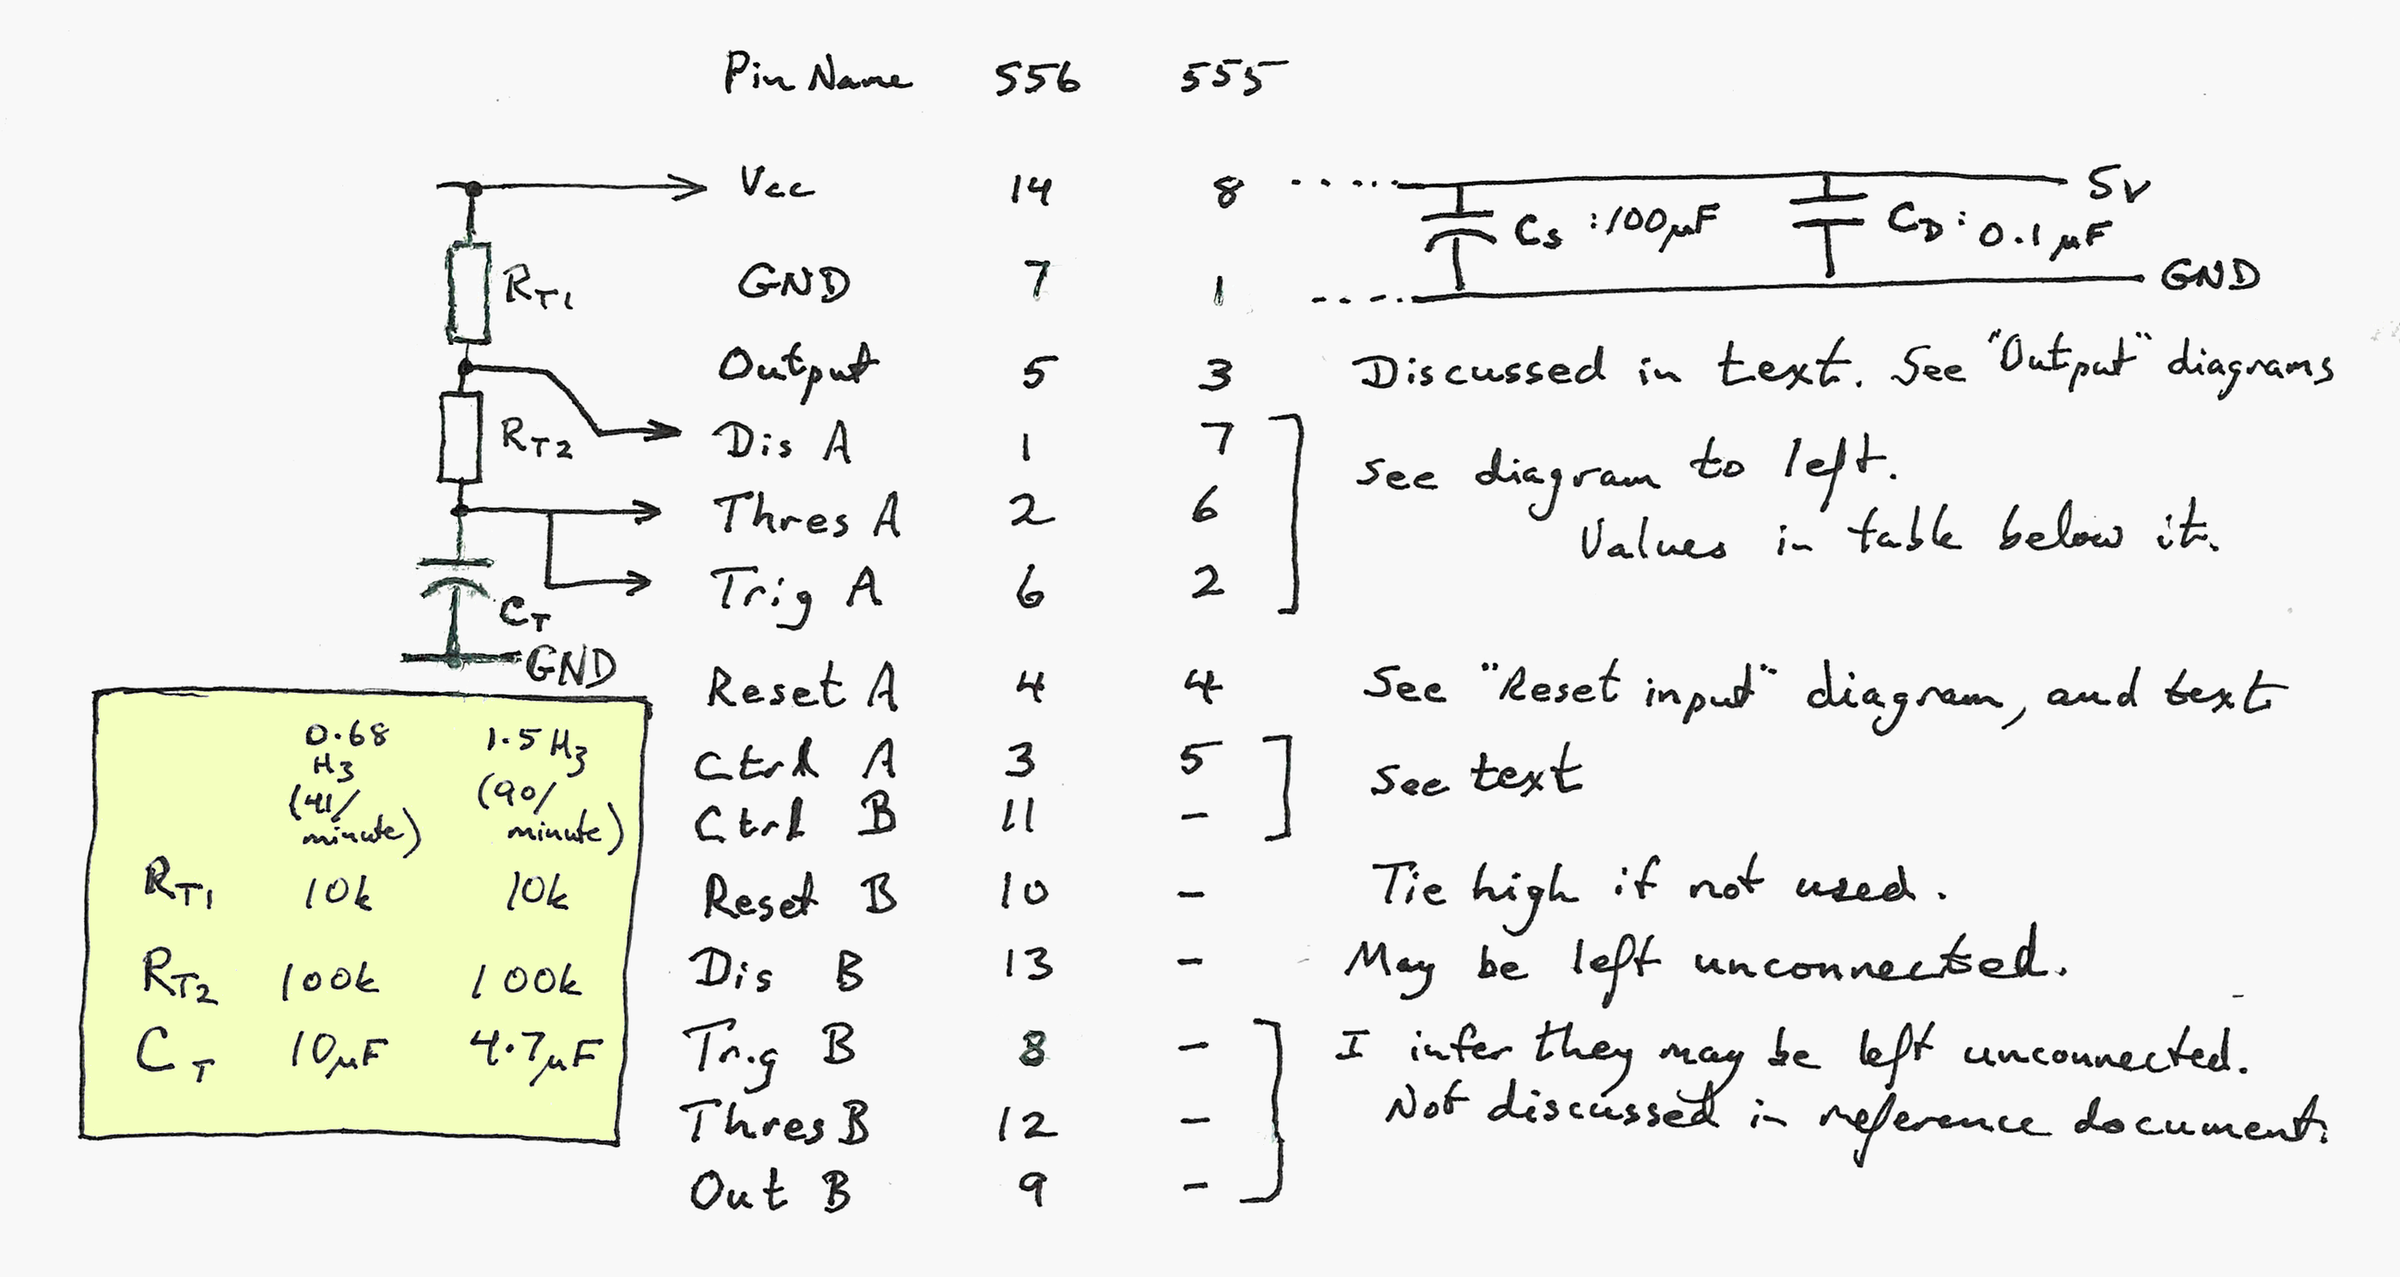 Pin Name 556 555
Vcc 14 8 5V
CS :100µF CD: 0.1µF
RT1 GND 7 1 GND
Output 5 3 Discussed in text. See "Output" diagrams
RT2 Dis A 1 7
See diagram to left.
Thres A 2 6
Values in table below it.
CT Trig A 6 2
GND
Reset A 4 4 See "Reset input" diagram, and text
Ctrl A 3 5
See text
Ctrl B 11 -
Reset B 10 - Tie high if not used.
Dis B 13 - May be left unconnected.
Trig B 8 - I infer they may be left unconnected.
Not discussed in reference document.
Thres B 12 -
Out B 9 -
0.68 1.5 Hz
Hz
(41/ (90/
minute) minute)
RT1 10k 10k
RT2 100k 100k
CT 10µF 4.7µF